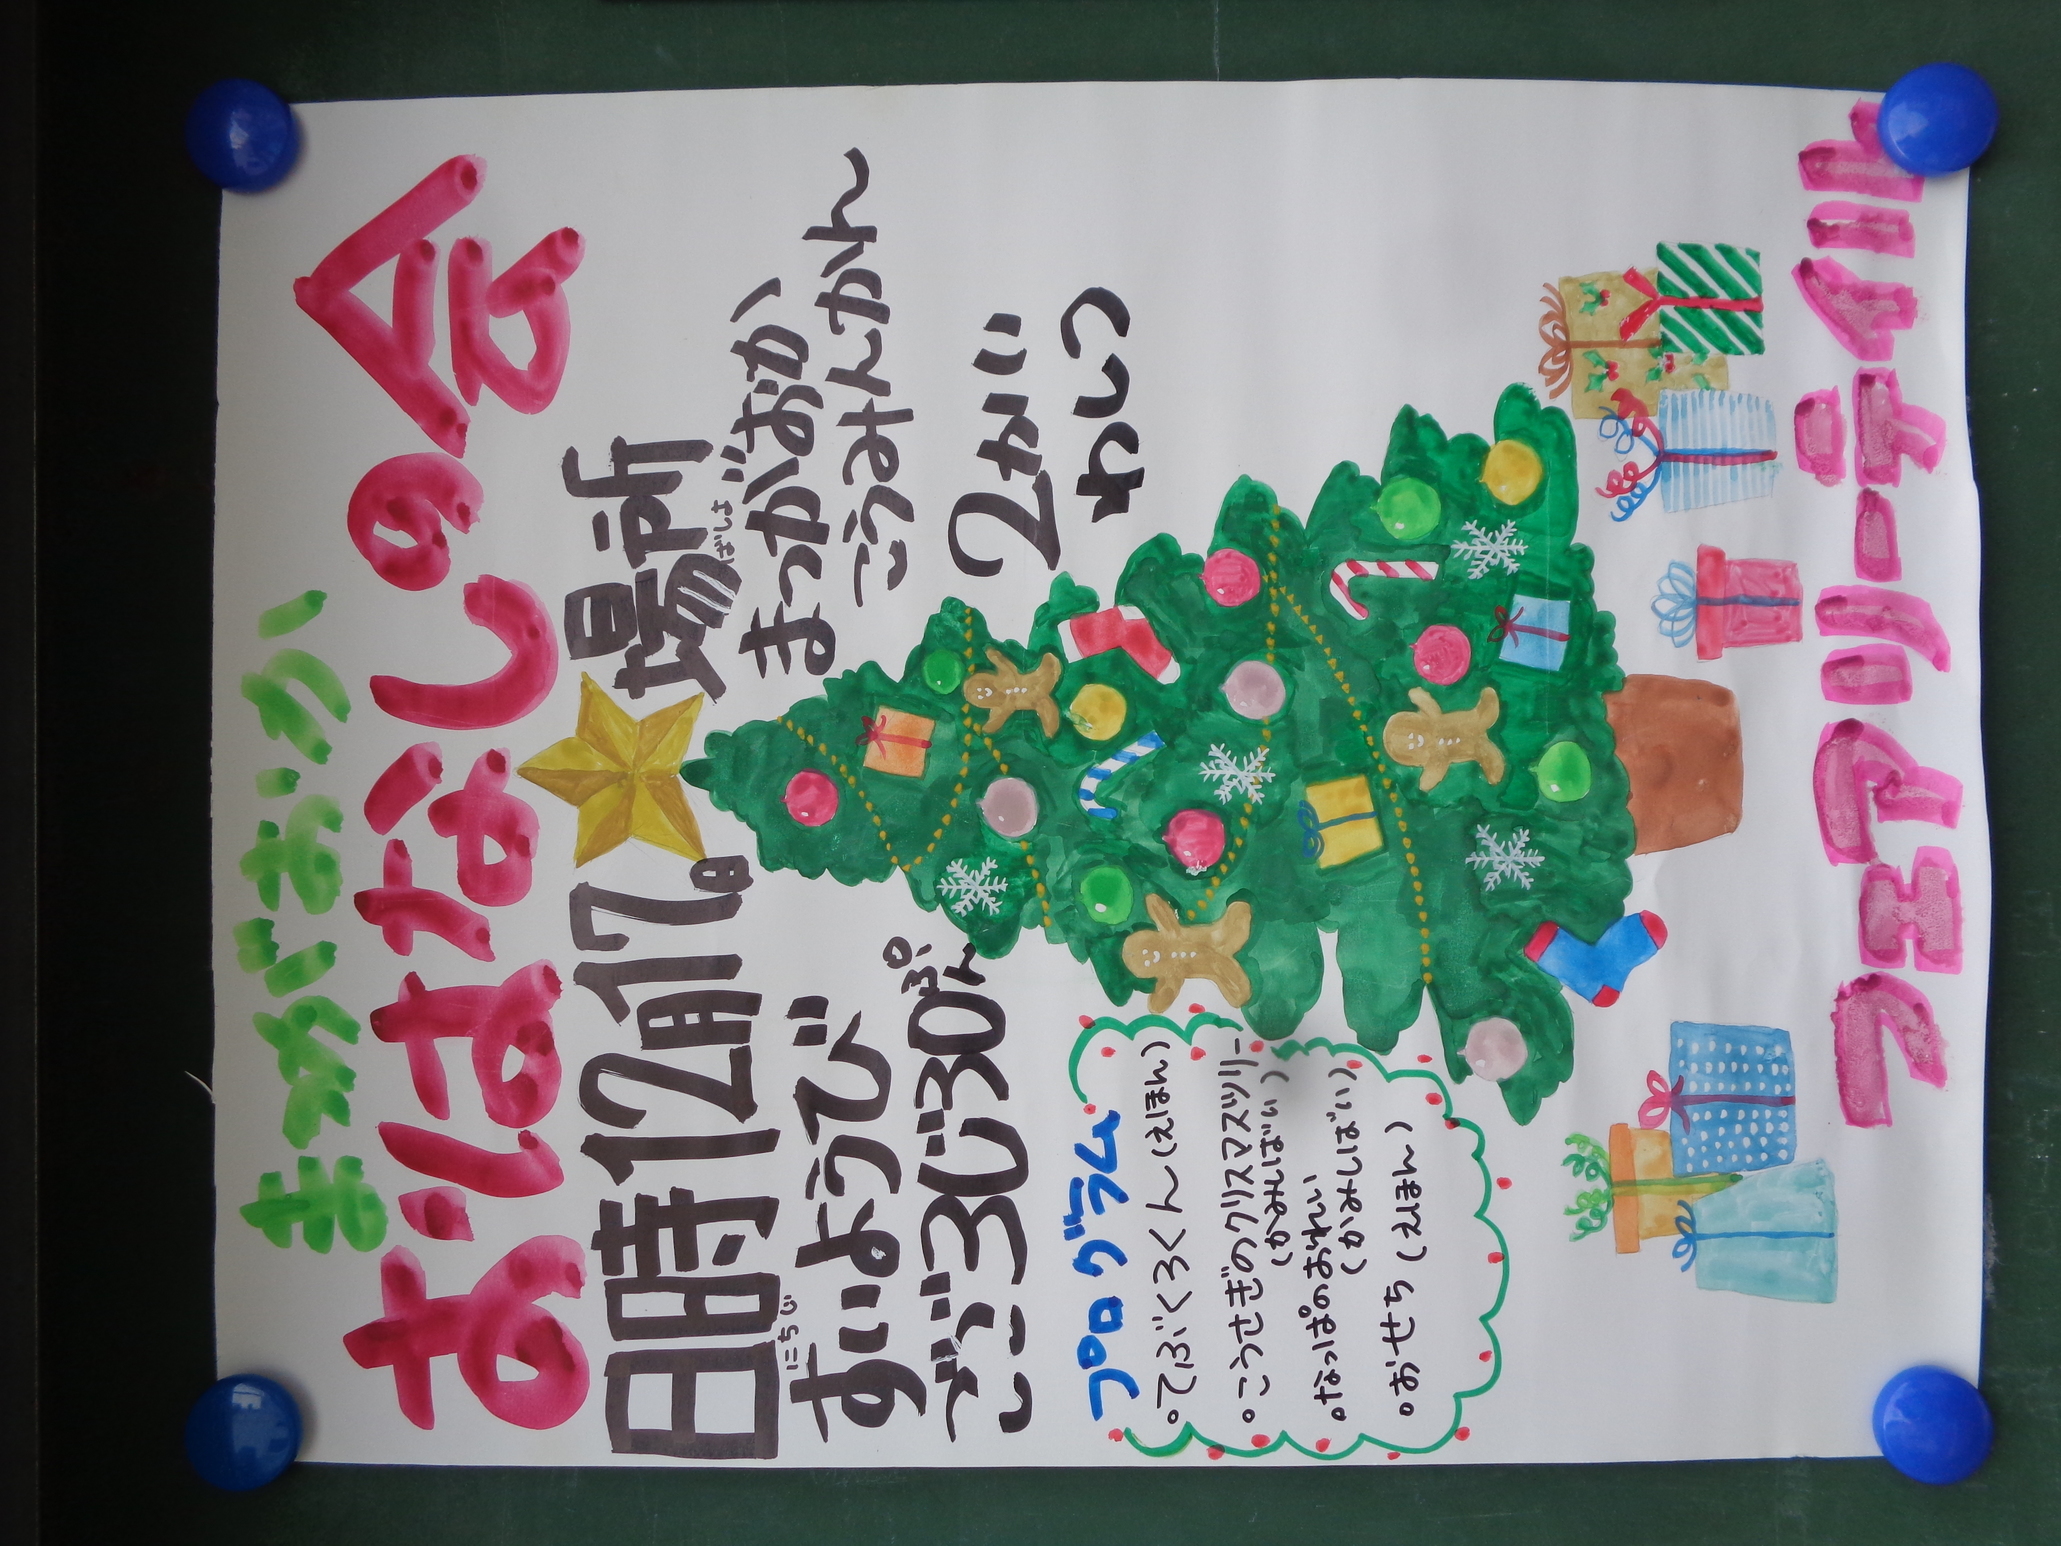 まつがおか
おはなしの会
日時12月17日
にちじ
すいようび
ごご3じ30ぷん
場所
ばしょ
まつがおか
こうみんかん
2かい
わしつ
プログラム
。てぶくろくん(えほん)
。こうさぎのクリスマスツリー
(かみしばい)
。なっぱのおれい
(かみしばい)
。おせち(えほん)
フェアリーテイル